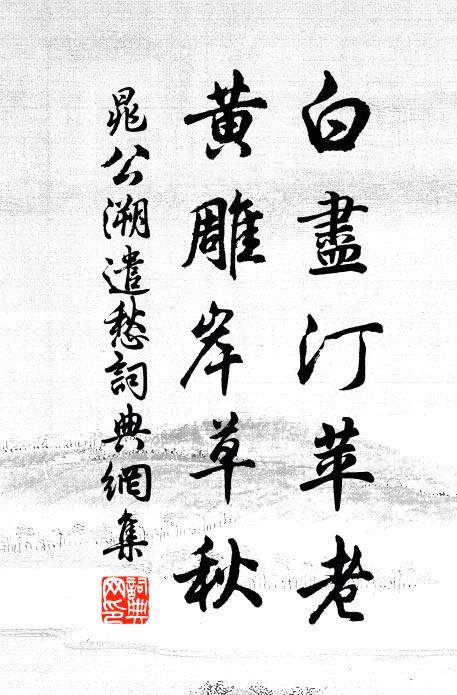 白盡汀苹老
黃雕岸草秋
晁公溯遣愁詞典網集
詞典网印